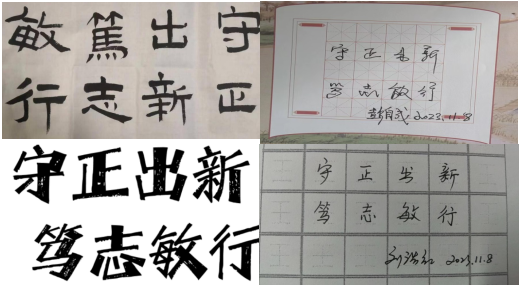 守正
出新
篤志
敏行
守正出新
笃志敏行
2023.11.8
守正出新
笃志敏行
守正出新
笃志敏行
刘 2023.11.8